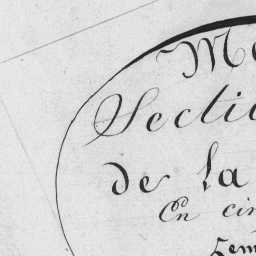 Secti
de la
En cin
5em